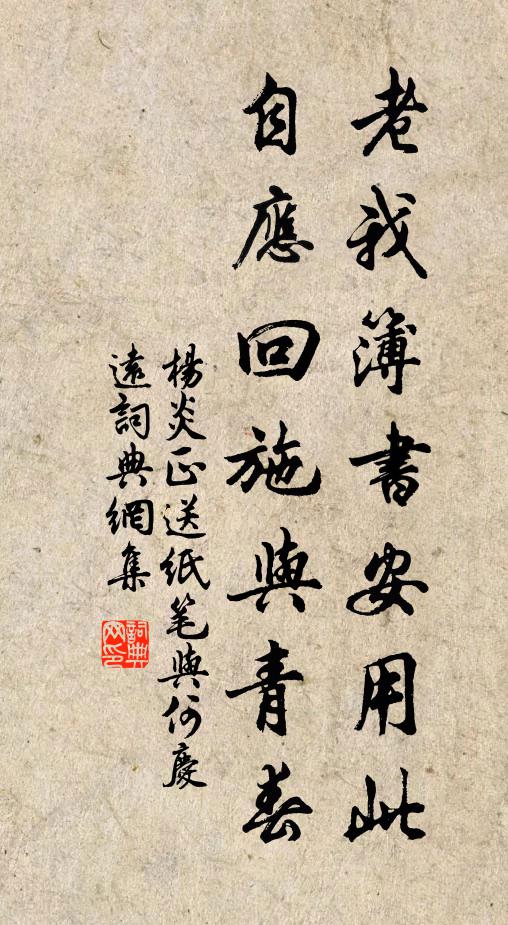 老我簿書安用此
自應回施與青春
楊炎正送紙笔與何慶
遠詞典網集
詞典
网印